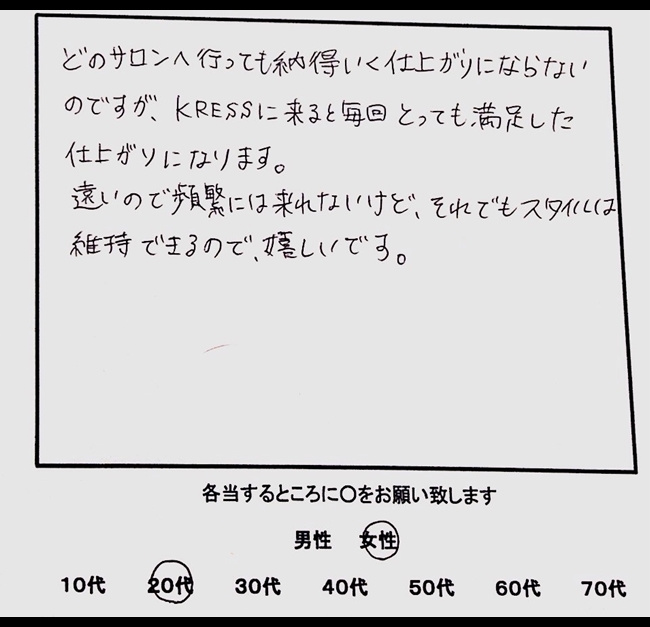 どのサロンへ行っても納得いく仕上がりにならない
のですが、KRESSに来ると毎回とっても満足した
仕上がりになります。
遠いので頻繁には来れないけど、それでもスタイルは
維持できるので、嬉しいです。
各当するところに〇をお願い致します
男性 女性
10代 20代 30代 40代 50代 60代 70代